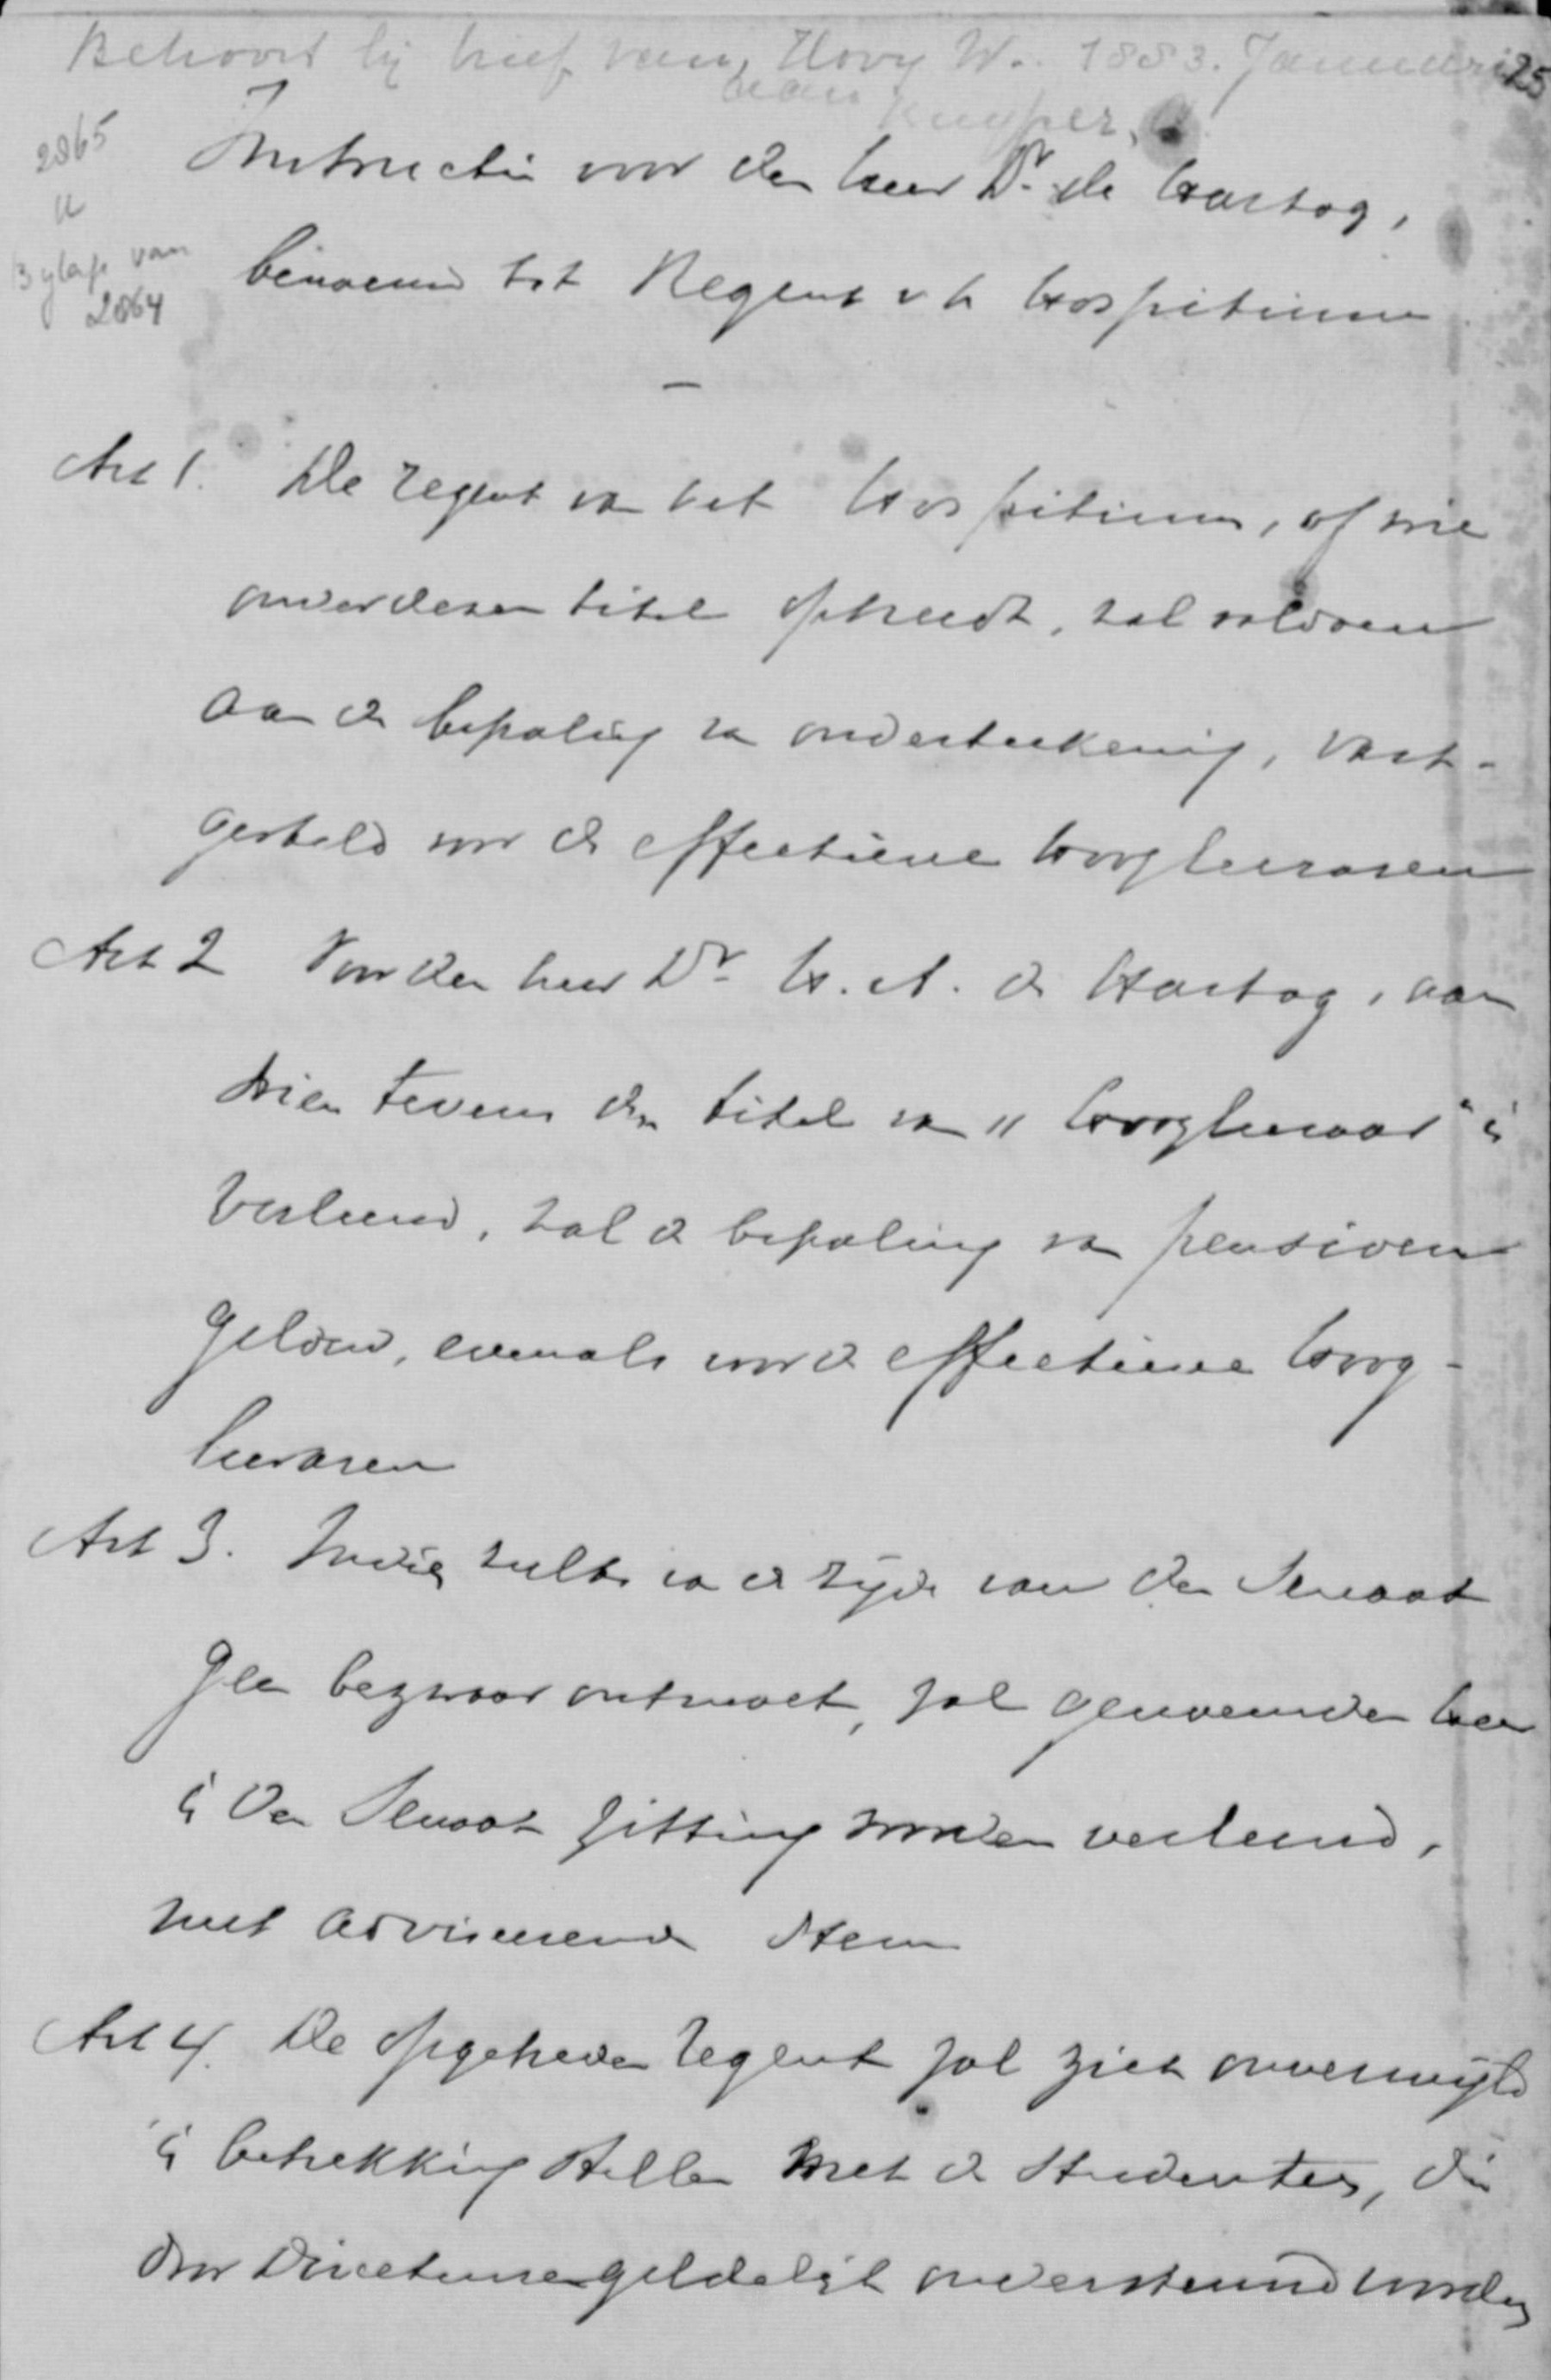 Behoort bij brief van Hovy W. 1883. Januari 25
aan Kuyper, A.
2865
a
Bijlage van
2864
Instructie voor den heer Dr. de Hartog,
benoemd tot Regent v h Hospitium
—
Art 1. De regent van het Hospitium, of wie
onder dezen titel optreedt, zal voldoen
aan de bepaling van onderteekening, vast-
gesteld voor de effectieve hoogleeraren
Art 2 Voor den heer Dr. H. A. de Hartog, aan
wien tevens den titel van "Hoogleeraar" is
verleend, zal de bepaling van pensioen
geldend, evenals voor de effectieve hoog-
leeraren
Art 3. Indien zulks van de zijde van den Senaat
geen bezwaar ontmoet, zal genoemden heer
in den Senaat zitting worden verleend,
met adviseerende stem
Art 4. De opgetreden regent zal zich onverwijld
in betrekking stellen met de studenten, die
door Directeuren geldelijk ondersteund worden